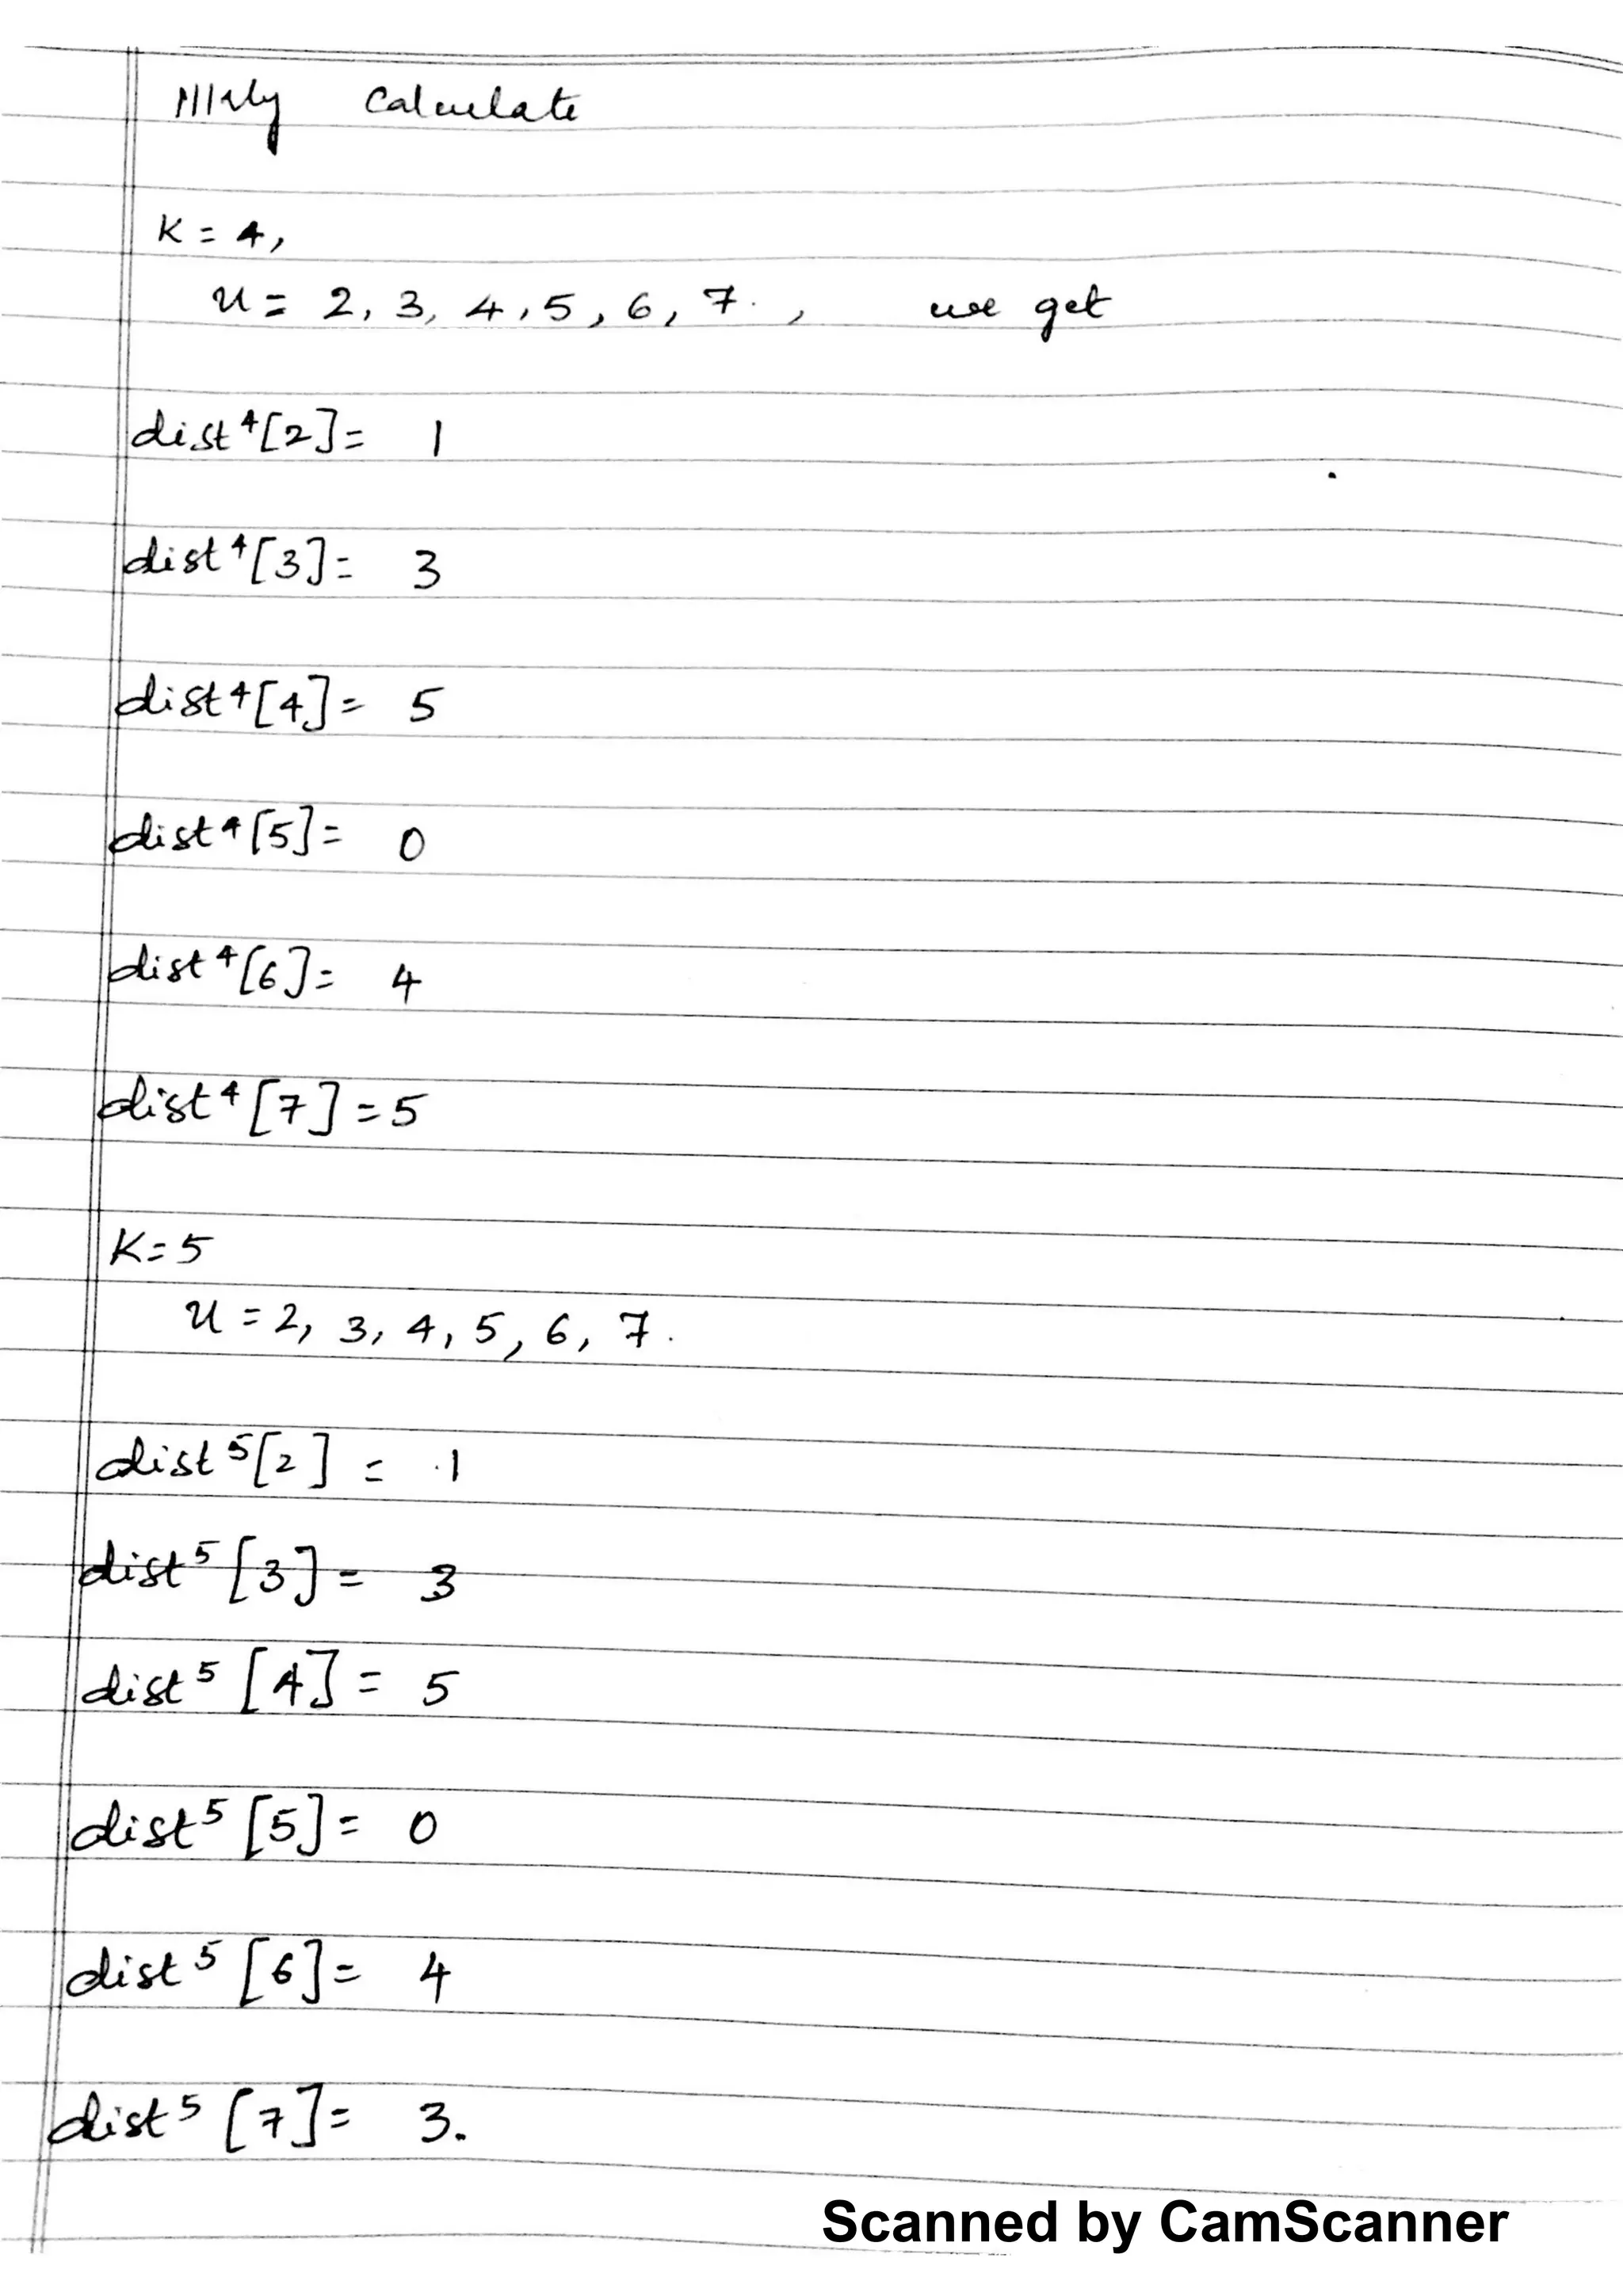 |||rly Calculate
K = 4,
u = 2, 3, 4, 5, 6, 7. , we get
dist⁴[2] = 1
dist⁴[3] = 3
dist⁴[4] = 5
dist⁴[5] = 0
dist⁴[6] = 4
dist⁴[7] = 5
K = 5
u = 2, 3, 4, 5, 6, 7.
dist⁵[2] = 1
dist⁵[3] = 3
dist⁵[4] = 5
dist⁵[5] = 0
dist⁵[6] = 4
dist⁵[7] = 3.
Scanned by CamScanner